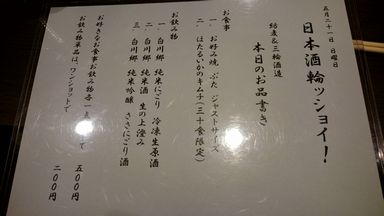 五月二十一日 日曜日
日本酒輪ッショイ!
結麦&三輪酒造
本日のお品書き
お食事
一 お好み焼 ぶた ジャストサイズ
二 ほたるいかのキムチ(三十食限定)
お飲み物
一 白川郷 純米にごり 冷凍生原酒
二 白川郷 純米酒 生の上澄み
三 白川郷 純米吟醸 ささにごり酒
お好きなお食事お飲み物各一点
五〇〇円
お飲み物単品は、ワンショットで
二〇〇円